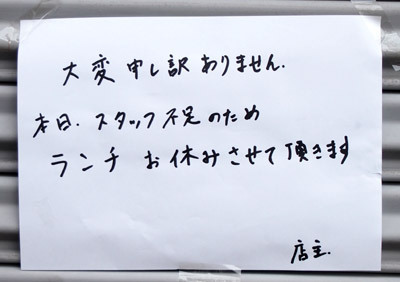 大変申し訳ありません.
本日.スタッフ不足のため
ランチ お休みさせて頂きます
店主.